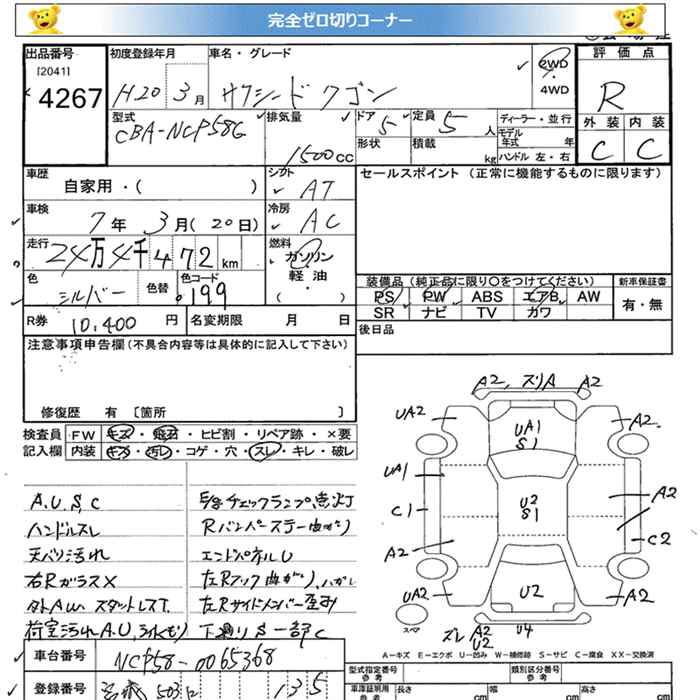 完全ゼロ切りコーナー
出品番号
[2041]
4267
初度登録年月
H20 3月
車名・グレード
サクシードワゴン
2WD
4WD
評価点
R
外装 内装
C C
型式
CBA-NCP58G
排気量
1500cc
ドア
5
形状
定員
5人
積載
kg
ディーラー・並行
モデル年式 年
ハンドル 左・右
車歴
自家用・( )
シフト
AT
セールスポイント (正常に機能するものに限ります)
車検
7年 3月(20日)
冷房
AC
走行
24万4千472km
燃料
ガソリン
軽油
・
( )
色
シルバー
色替
色コード
199
装備品 (純正品に限り〇をつけてください)
新車保証書
PS PW ABS エアB AW
SR ナビ TV カワ
有・無
R券 10,400 円
名変期限 月 日
後日品
注意事項申告欄 (不具合内容等は具体的に記入して下さい)
修復歴 有 〔箇所 〕
検査員記入欄
FW キズ・飛石・ヒビ割・リペア跡・×要
内装 キズ・汚レ・コゲ・穴・スレ・キレ・破レ
A.U.S.C
ハンドルスレ
天バリ汚れ
右Rガラス×
タトAW スタットレスT.
荷室汚れA.U,ライトくもり
チェックランプ点灯
Rバンパーステー曲がり
エンドパネルU
左Rフック曲がり、ハガレ
左Rサイドメンバー歪み
下廻りS一部C
A2, ズリA A2
UA2
A2
UA1
S1
UA1
C1
U2
S1
A2
C2
A2
UA2
U2
A2
スペア
ズレ A2
U2
U4
A－キズ E－エクボ U－凹み W－補修跡 S－サビ C－腐食 XX－交換済
車台番号
NCP58-0065368
登録番号
503
135
型式指定番号
参考
類別区分番号
参考
車庫証明用
参考
長さ
cm
幅
cm
高さ
cm